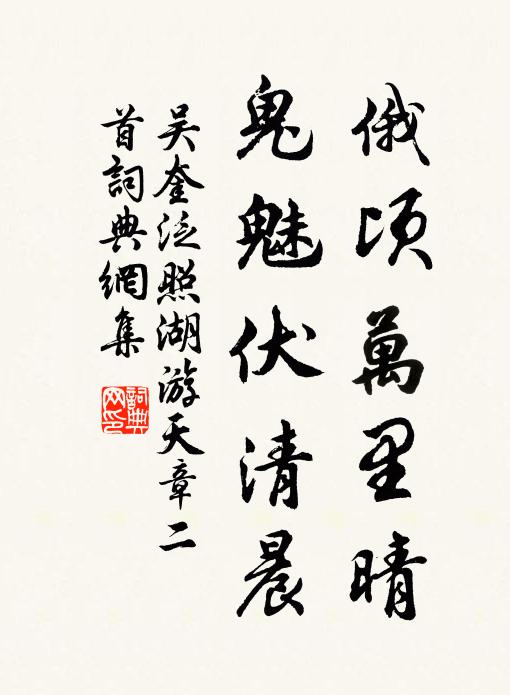 俄頃萬里晴
鬼魅伏清晨
吴奎泛照湖游天章二
首詞典網集
詞典
网印